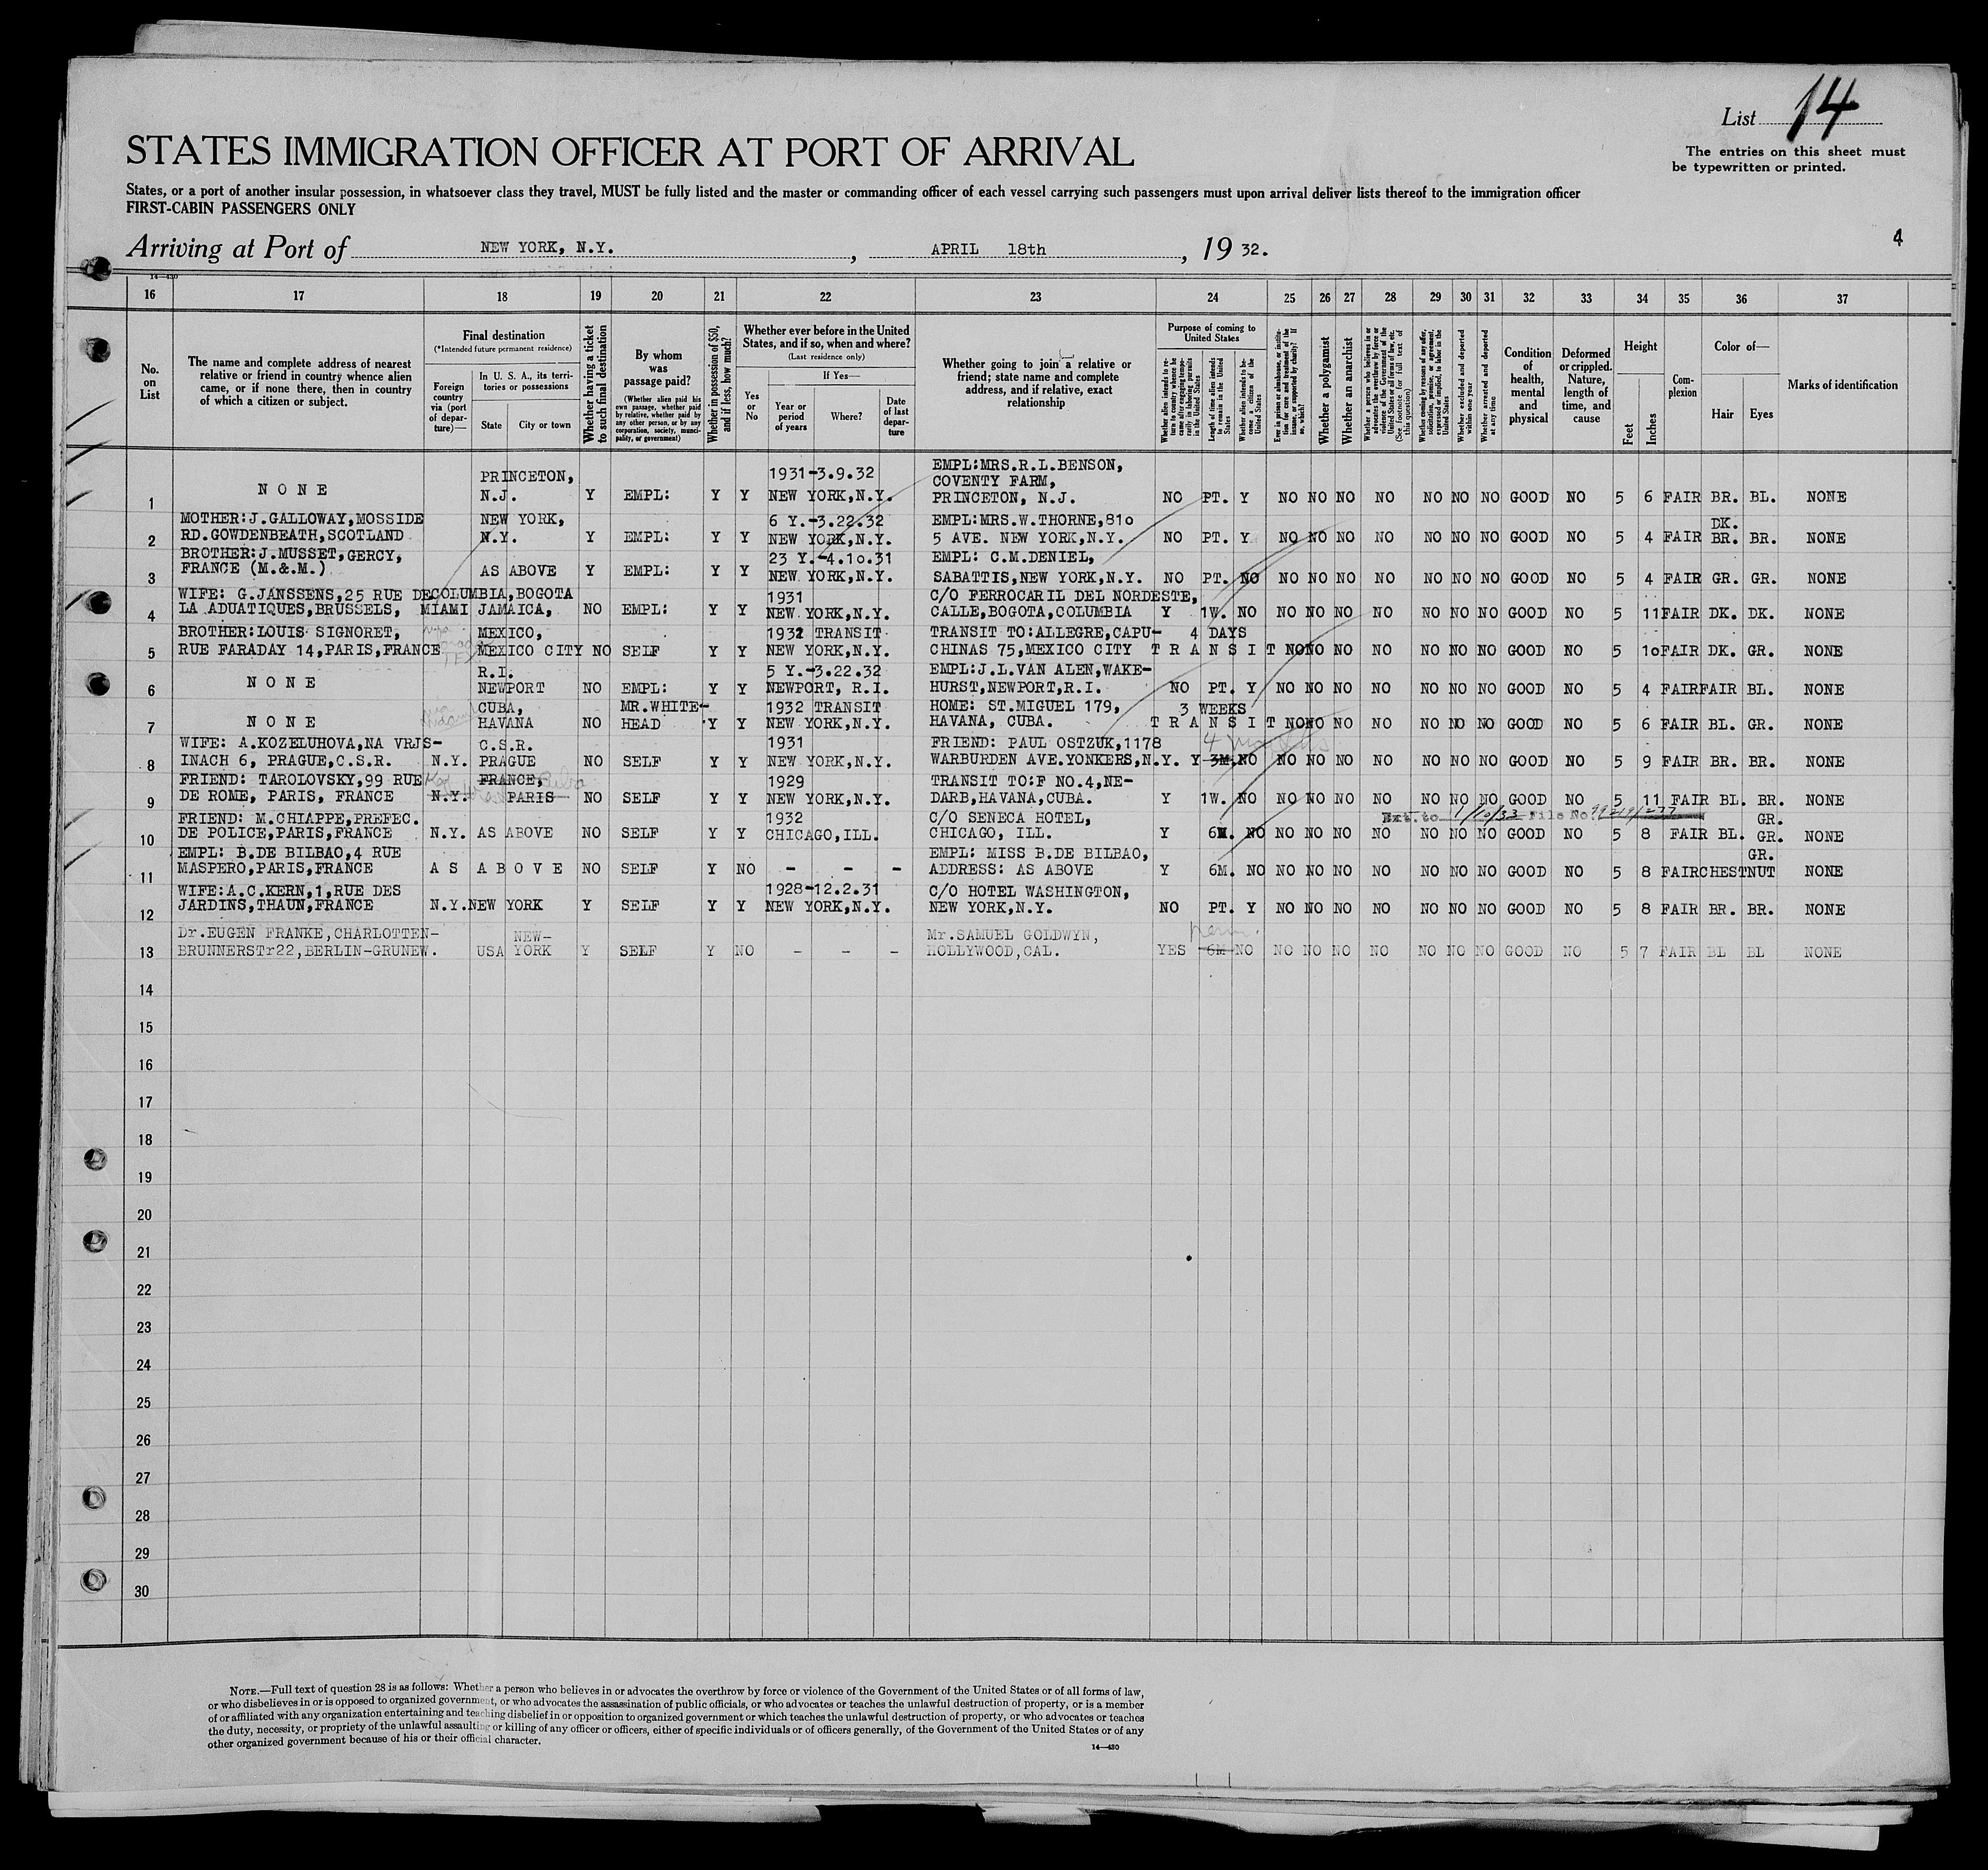 List 14
The entries on this sheet must
be typewritten or printed.
STATES IMMIGRATION OFFICER AT PORT OF ARRIVAL
States, or a port of another insular possession, in whatsoever class they travel, MUST be fully listed and the master or commanding officer of each vessel carrying such passengers must upon arrival deliver lists thereof to the immigration officer
FIRST-CABIN PASSENGERS ONLY
Arriving at Port of NEW YORK, N.Y. , APRIL 18th , 19 32.
4
14—430
16 17 18 19 20 21 22 23 24 25 26 27 28 29 30 31 32 33 34 35 36 37
No. on List
The name and complete address of nearest relative or friend in country whence alien came, or if none there, then in country of which a citizen or subject.
Final destination
(*Intended future permanent residence)
Foreign country via (port of departure)—
In U. S. A., its territories or possessions
State
City or town
Whether having a ticket to such final destination
By whom was passage paid?
(Whether alien paid his own passage, whether paid by relative, whether paid by any other person, or by any corporation, society, municipality, or government)
Whether in possession of $50, and if less, how much?
Whether ever before in the United States, and if so, when and where?
(Last residence only)
Yes or No
If Yes—
Year or period of years
Where?
Date of last departure
Whether going to join a relative or friend; state name and complete address, and if relative, exact relationship
Purpose of coming to United States
Whether alien intends to return to country whence he came after engaging temporarily in laboring pursuits in the United States
Length of time alien intends to remain in the United States
Whether alien intends to become a citizen of the United States
Ever in prison or almshouse, or institution for care and treatment of the insane, or supported by charity? If so, which?
Whether a polygamist
Whether an anarchist
Whether a person who believes in or advocates the overthrow by force or violence of the Government of the United States or all forms of law, etc. (See footnote for full text of this question)
Whether coming by reasons of any offer, solicitation, promise, or agreement, expressed or implied, to labor in the United States
Whether excluded and deported within one year
Whether arrested and deported at any time
Condition of health, mental and physical
Deformed or crippled. Nature, length of time, and cause
Height
Feet
Inches
Complexion
Color of—
Hair
Eyes
Marks of identification
PRINCETON, 1931-3.9.32 EMPL:MRS.R.L.BENSON,
COVENTY FARM,
1 NONE N.J. Y EMPL: Y Y NEW YORK,N.Y. PRINCETON, N.J. NO PT. Y NO NO NO NO NO NO NO GOOD NO 5 6 FAIR BR. BL. NONE
MOTHER:J.GALLOWAY,MOSSIDE NEW YORK, 6 Y.-3.22.32 EMPL:MRS.W.THORNE,810 DK.
2 RD.GOWDENBEATH,SCOTLAND N.Y. Y EMPL: Y Y NEW YORK,N.Y. 5 AVE. NEW YORK,N.Y. NO PT. Y NO NO NO NO NO NO NO GOOD NO 5 4 FAIR BR. BR. NONE
BROTHER:J.MUSSET,GERCY, 23 Y.-4.10.31 EMPL: C.M.DENIEL,
3 FRANCE (M.&M.) AS ABOVE Y EMPL: Y Y NEW YORK,N.Y. SABATTIS,NEW YORK,N.Y. NO PT. NO NO NO NO NO NO NO NO GOOD NO 5 4 FAIR GR. GR. NONE
WIFE: G.JANSSENS,25 RUE DE COLUMBIA,BOGOTA 1931 C/O FERROCARIL DEL NORDESTE,
4 LA ADUATIQUES,BRUSSELS, MIAMI JAMAICA, NO EMPL: Y Y NEW YORK,N.Y. CALLE,BOGOTA,COLUMBIA Y 1W. NO NO NO NO NO NO NO NO GOOD NO 5 11 FAIR DK. DK. NONE
BROTHER:LOUIS SIGNORET, MEXICO, 1932 TRANSIT TRANSIT TO:ALLEGRE,CAPU- 4 DAYS
5 RUE FARADAY 14,PARIS,FRANCE MEXICO CITY NO SELF Y Y NEW YORK,N.Y. CHINAS 75,MEXICO CITY TRANSIT NO NO NO NO NO NO NO GOOD NO 5 10 FAIR DK. GR. NONE
R.I. 5 Y.-3.22.32 EMPL:J.L.VAN ALEN,WAKE-
6 NONE NEWPORT NO EMPL: Y Y NEWPORT, R.I. HURST,NEWPORT,R.I. NO PT. Y NO NO NO NO NO NO NO GOOD NO 5 4 FAIR FAIR BL. NONE
CUBA, MR.WHITE- 1932 TRANSIT HOME: ST.MIGUEL 179, 3 WEEKS
7 NONE HAVANA NO HEAD Y Y NEW YORK,N.Y. HAVANA, CUBA. TRANSIT NO NO NO NO NO NO NO GOOD NO 5 6 FAIR BL. GR. NONE
WIFE: A.KOZELUHOVA,NA VRJS- C.S.R. 1931 FRIEND: PAUL OSTZUK,1178 4 months
8 INACH 6, PRAGUE,C.S.R. N.Y. PRAGUE NO SELF Y Y NEW YORK,N.Y. WARBURDEN AVE.YONKERS,N.Y. Y 3M. NO NO NO NO NO NO NO NO GOOD NO 5 9 FAIR BR. BR. NONE
FRIEND: TAROLOVSKY,99 RUE FRANCE, Cuba 1929 TRANSIT TO:F NO.4,NE-
9 DE ROME, PARIS, FRANCE N.Y. PARIS NO SELF Y Y NEW YORK,N.Y. DARB,HAVANA,CUBA. Y 1W. NO NO NO NO NO NO NO NO GOOD NO 5 11 FAIR BL. BR. NONE
FRIEND: M.CHIAPPE,PREFEC. 1932 C/O SENECA HOTEL, Ext. to 1/10/33 File No. GR.
10 DE POLICE,PARIS,FRANCE N.Y. AS ABOVE NO SELF Y Y CHICAGO,ILL. CHICAGO, ILL. Y 6M. NO NO NO NO NO NO NO NO GOOD NO 5 8 FAIR BL. GR. NONE
EMPL: B.DE BILBAO,4 RUE EMPL: MISS B.DE BILBAO, GR.
11 MASPERO,PARIS,FRANCE AS ABOVE NO SELF Y NO - - - ADDRESS: AS ABOVE Y 6M. NO NO NO NO NO NO NO NO GOOD NO 5 8 FAIR CHESTNUT NONE
WIFE:A.C.KERN,1,RUE DES 1928-12.2.31 C/O HOTEL WASHINGTON,
12 JARDINS,THAUN,FRANCE N.Y. NEW YORK Y SELF Y Y NEW YORK,N.Y. NEW YORK,N.Y. NO PT. Y NO NO NO NO NO NO NO GOOD NO 5 8 FAIR BR. BR. NONE
Dr.EUGEN FRANKE,CHARLOTTEN- NEW- Mr.SAMUEL GOLDWYN, perm.
13 BRUNNERSTr22,BERLIN-GRUNEW. USA YORK Y SELF Y NO - - - HOLLYWOOD,CAL. YES 6M NO NO NO NO NO NO NO NO GOOD NO 5 7 FAIR BL BL NONE
14
15
16
17
18
19
20
21
22
23
24
25
26
27
28
29
30
NOTE.—Full text of question 28 is as follows: Whether a person who believes in or advocates the overthrow by force or violence of the Government of the United States or of all forms of law,
or who disbelieves in or is opposed to organized government, or who advocates the assassination of public officials, or who advocates or teaches the unlawful destruction of property, or is a member
of or affiliated with any organization entertaining and teaching disbelief in or opposition to organized government or which teaches the unlawful destruction of property, or who advocates or teaches
the duty, necessity, or propriety of the unlawful assaulting or killing of any officer or officers, either of specific individuals or of officers generally, of the Government of the United States or of any
other organized government because of his or their official character.
14—430